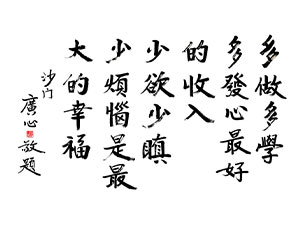 多做多學
多發心最好
的收入
少欲少瞋
少煩惱是最
大的幸福
沙门
廣心敬題